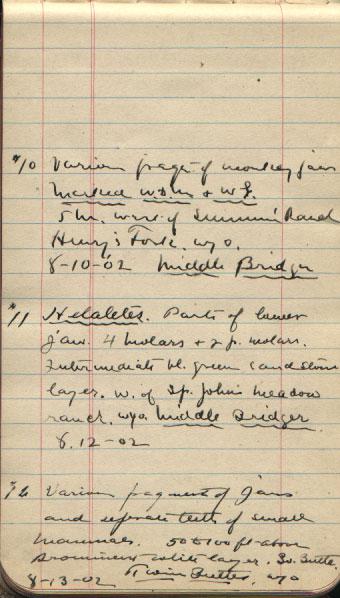 #10 Various frags of monkey jaws
Marked W.D.M + W.G.
5 m. west of Summers Ranch
Henry's Fork. Wyo.
8-10-02 Middle Bridger
#11 Helaletes. Parts of lower
jaw. 4 molars + 2 p. molars.
Intermediate bl. green sandstone
layer. W. of Sp. John's meadow
ranch. Wyo. Middle Bridger
8.12-02
#12 Various fragments of jaws
and separate teeth of small
mammals. 50 to 100 ft above
prominent white layer. So. Butte.
8-13-02 Twin Buttes, Wyo